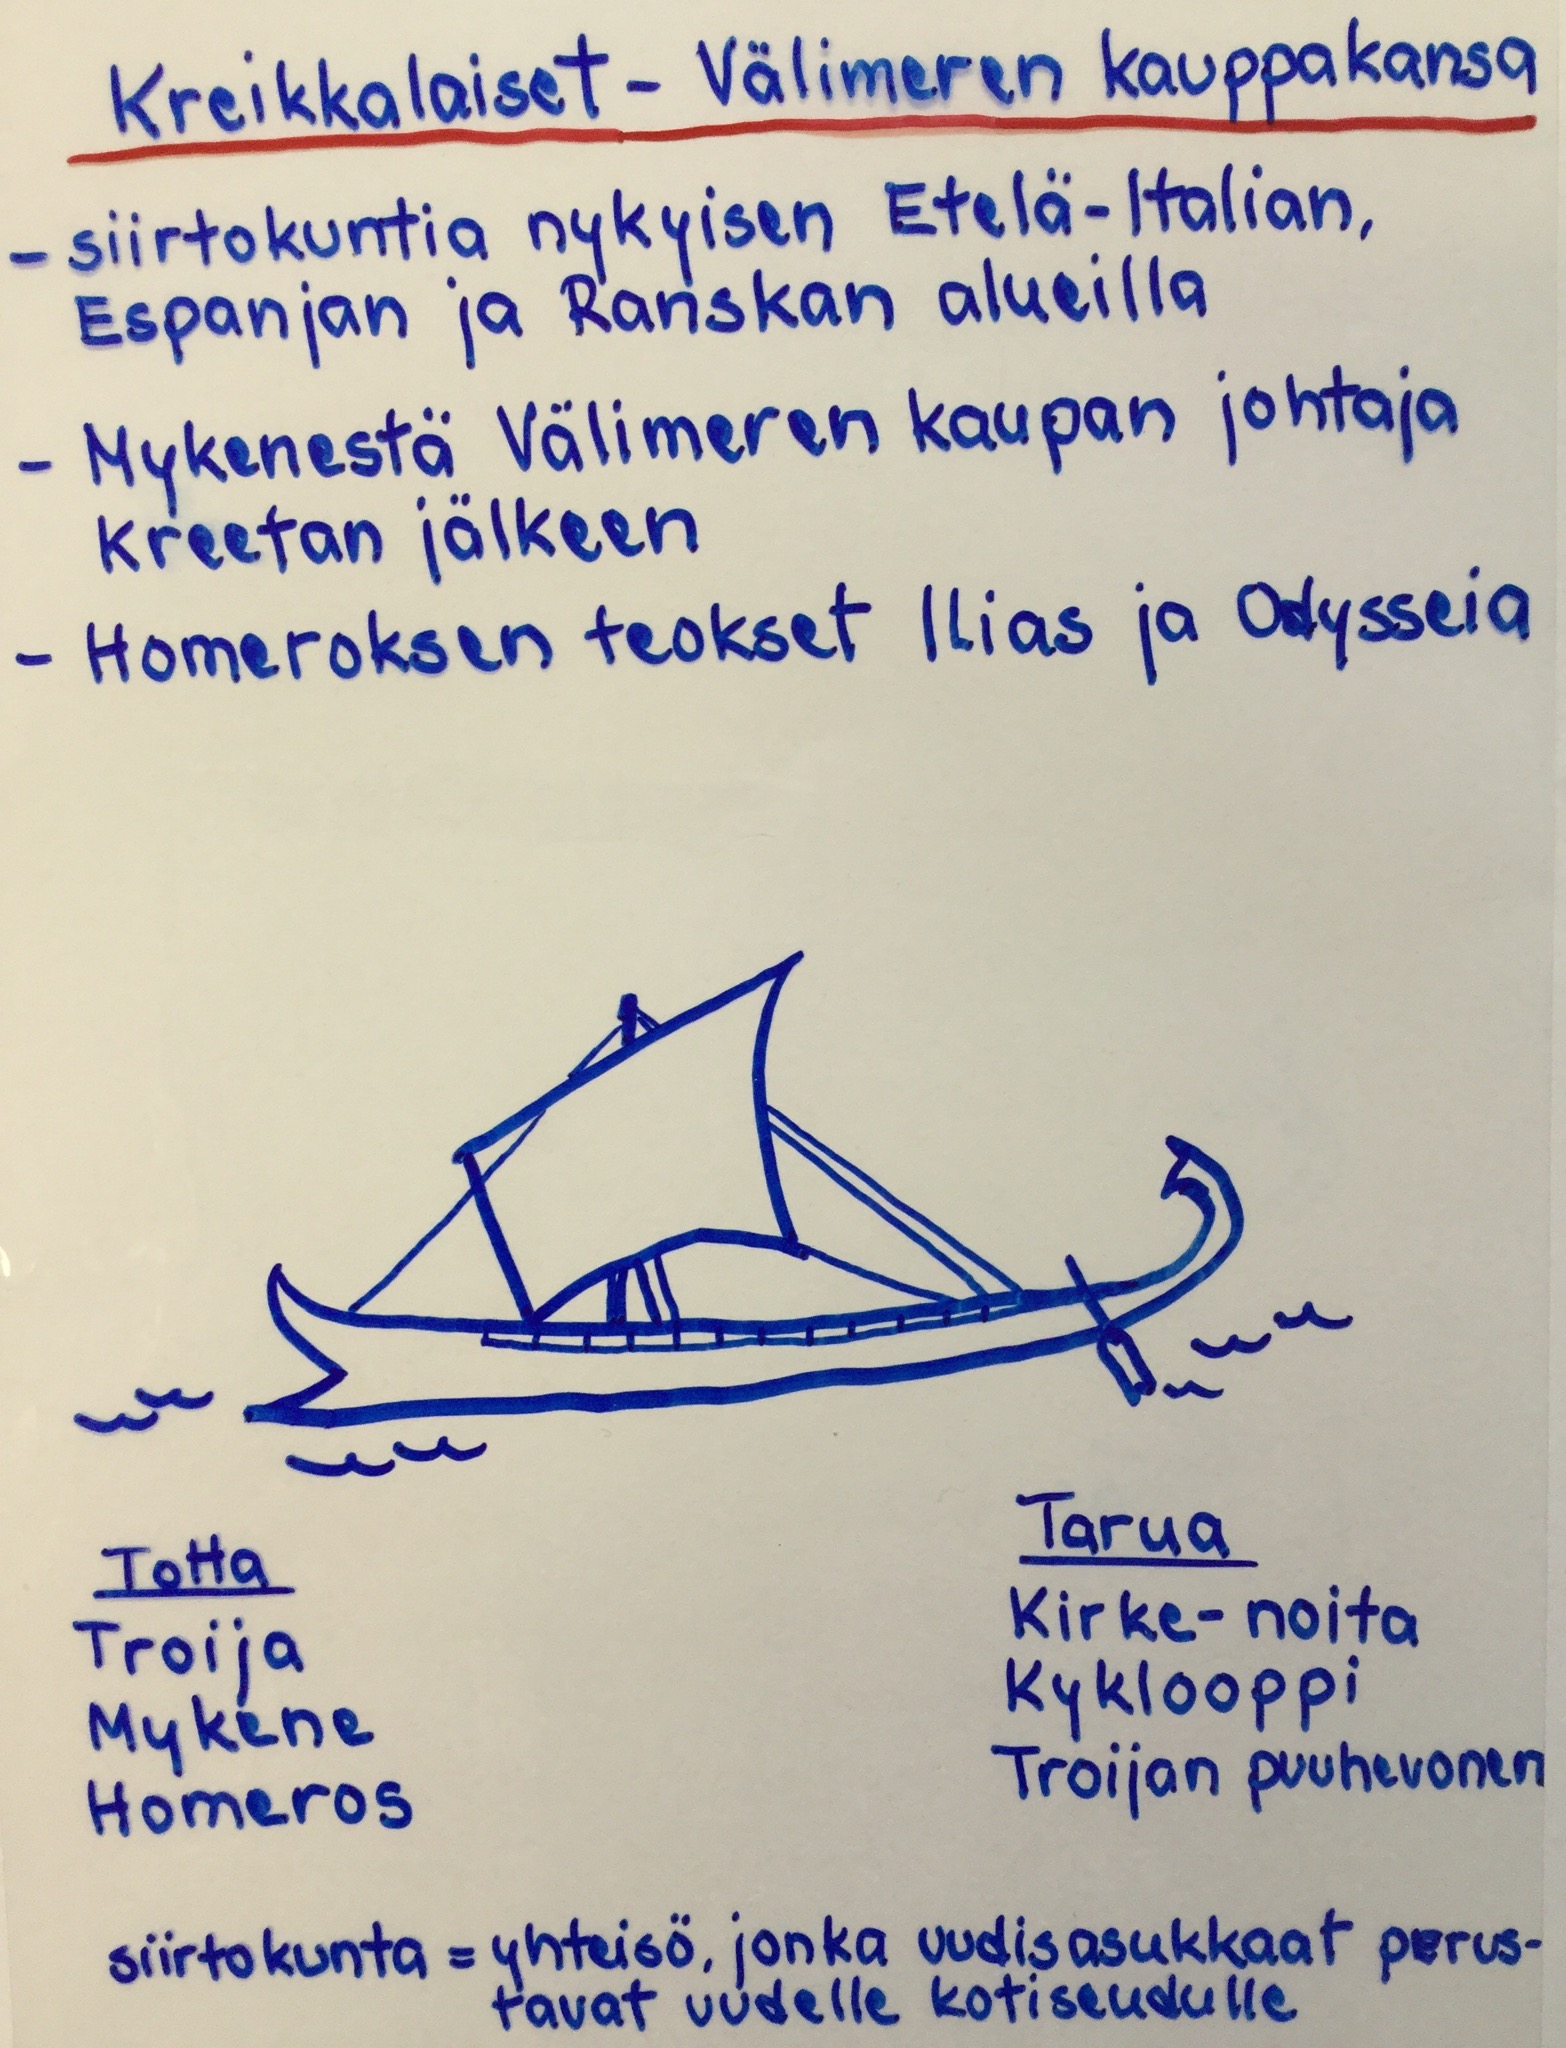 Kreikkalaiset - Välimeren kauppakansa
- siirtokuntia nykyisen Etelä-Italian,
Espanjan ja Ranskan alueilla
- Mykenestä Välimeren kaupan johtaja
Kreetan jälkeen
- Homeroksen teokset Ilias ja Odysseia
Totta
Troija
Mykene
Homeros
Tarua
Kirke-noita
Kyklooppi
Troijan puuhevonen
siirtokunta = yhteisö, jonka uudisasukkaat perus-
tavat uudelle kotiseudulle